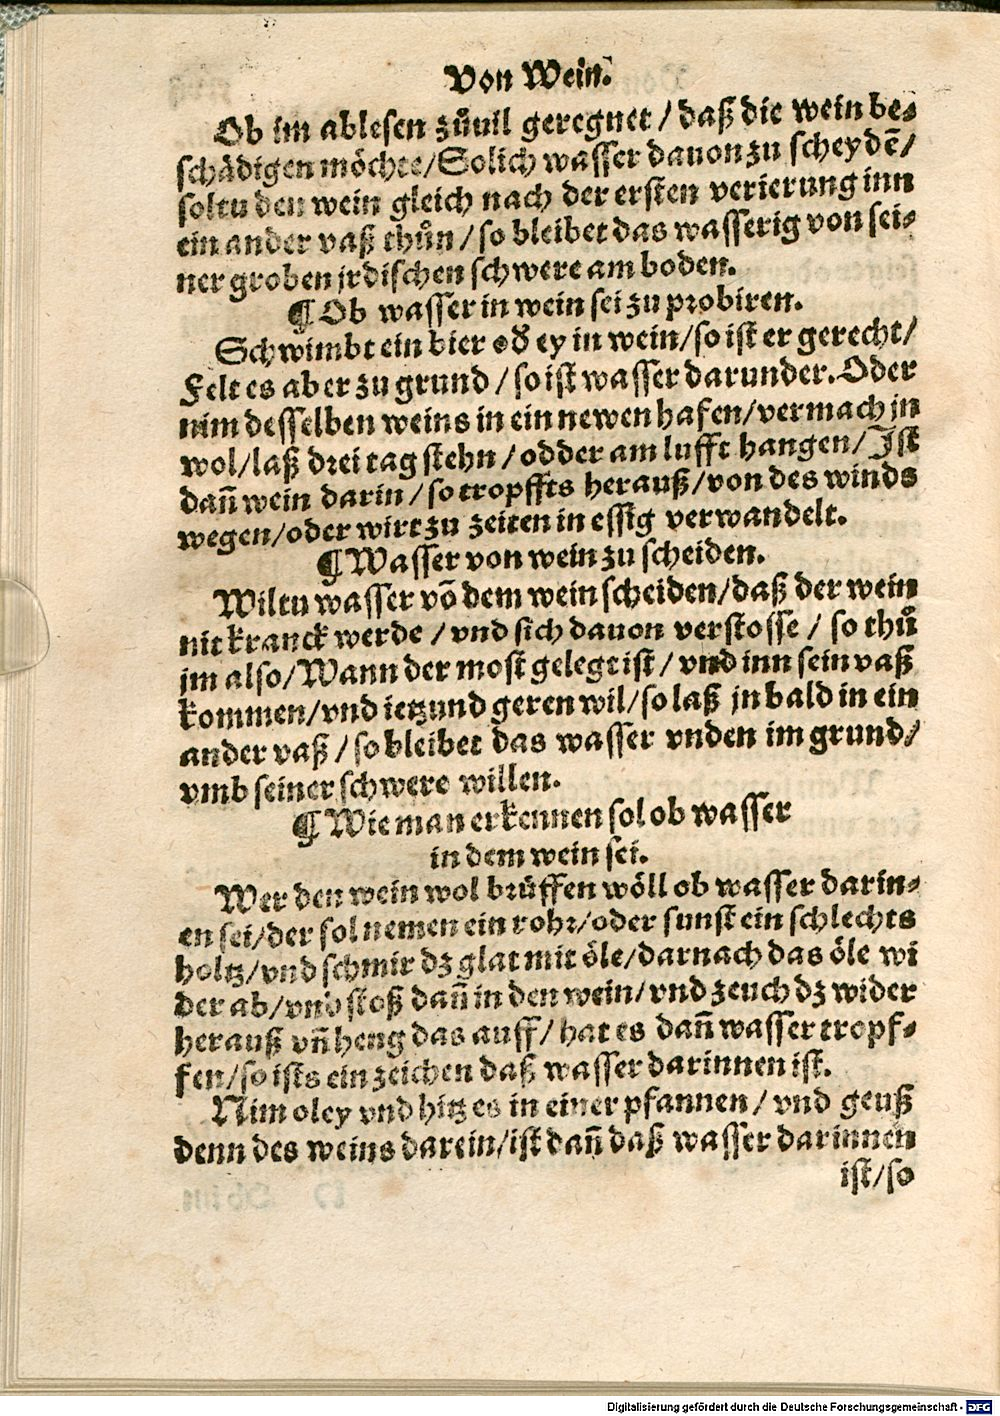 Von Wein.
Ob im ablesen zůuil geregnet / daß die wein be⸗
schädigen möchte/Solich wasser dauon zu scheydẽ/
soltu den wein gleich nach der ersten verierung inn
ein ander vaß thůn / so bleibet das wasserig von sei⸗
ner groben jrdischen schwere am boden.
¶ Ob wasser in wein sei zu probiren.
Schwimbt ein bier oð ey in wein/so ist er gerecht/
Felt es aber zu grund / so ist wasser darunder. Oder
nim desselben weins in ein newen hafen/vermach jn
wol/laß drei tag stehn / odder am lufft hangen/Ist
dañ wein darin / so tropffts herauß/von des winds
wegen/oder wirt zu zeiten in essig verwandelt.
¶ Wasser von wein zu scheiden.
Wiltu wasser võ dem wein scheiden/daß der wein
nit kranck werde / vnd sich dauon verstosse / so thů
jm also/Wann der most gelegt ist / vnd inn sein vaß
kommen/vnd ietzund geren wil/so laß jn bald in ein
ander vaß / so bleibet das wasser vnden im grund/
vmb seiner schwere willen.
¶ Wie man erkennen sol ob wasser
in dem wein sei.
Wer den wein wol brüffen wöll ob wasser darin⸗
en sei/der sol nemen ein rohr/oder sunst ein schlechts
holtz/vnd schmir dz glat mit öle/darnach das öle wi
der ab/vnd stoß dañ in den wein/vnd zeuch dz wider
herauß vñ heng das auff/ hat es dañ wasser tropf⸗
fen/so ists ein zeichen daß wasser darinnen ist.
Nim oley vnd hitz es in einer pfannen / vnd geuß
denn des weins darein/ist dañ daß wasser darinnen
ist/so
Digitalisierung gefördert durch die Deutsche Forschungsgemeinschaft - DFG